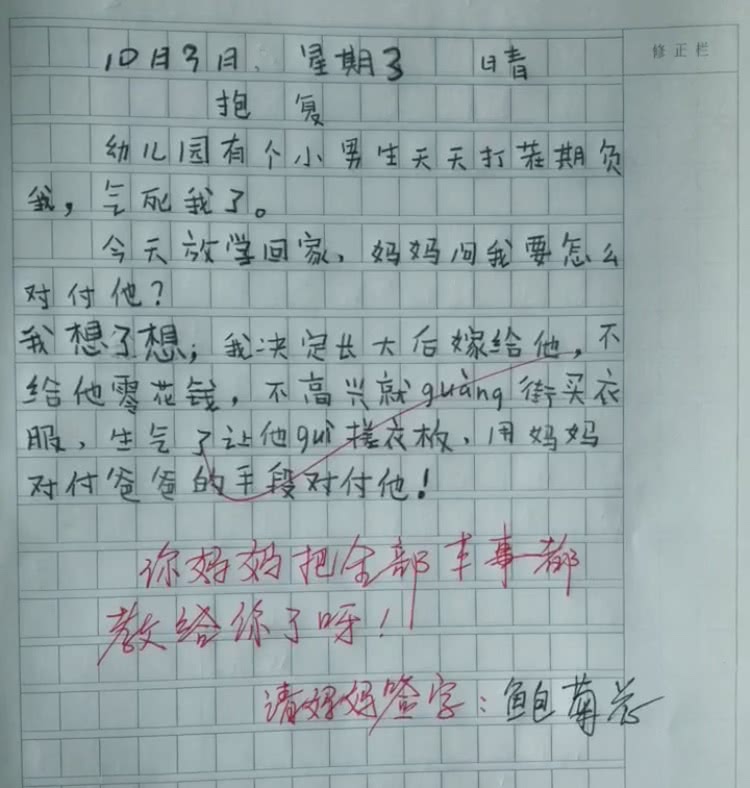 修正栏
10月3日、星期3 晴
抱复
幼儿园有个小男生天天打茬期负
我，气死我了。
今天放学回家，妈妈问我要怎么
对付他？
我想了想；我决定长大后嫁给他，不
给他零花钱，不高兴就guàng街买衣
服、生气了让他guì搓衣板、用妈妈
对付爸爸的手段对付他！
你妈妈把全部本事都
教给你了呀！
请妈妈签字：鲍菊芯